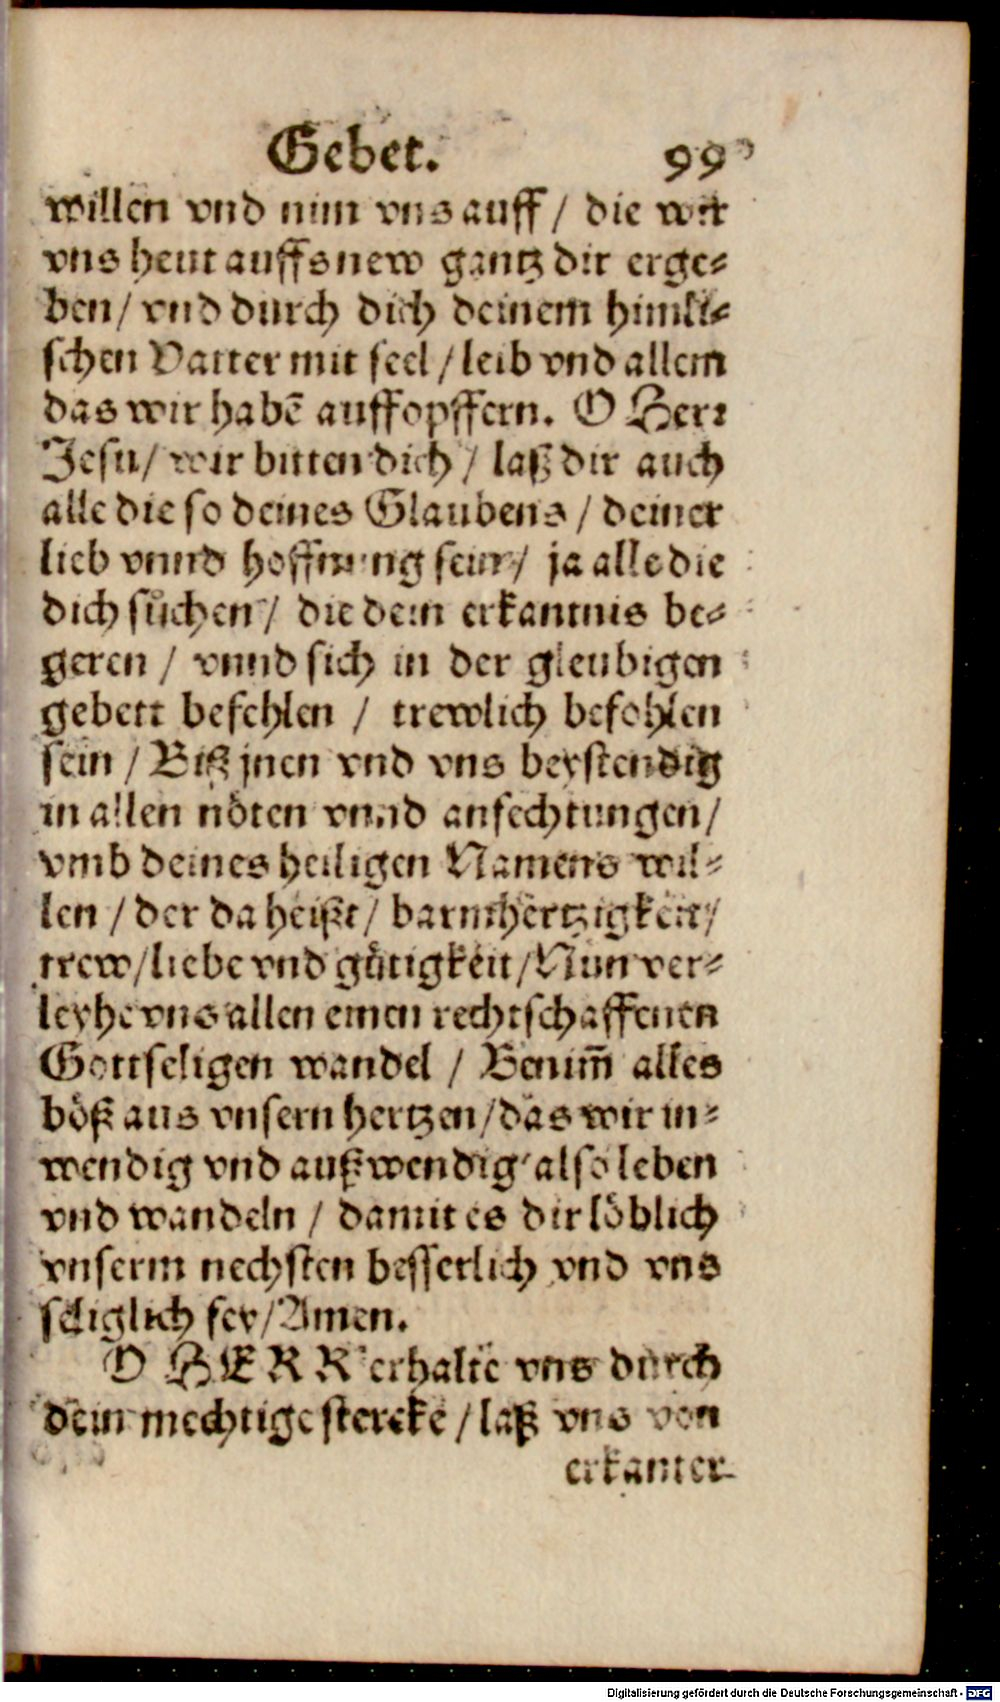 Gebet. 99
willen vnd nim vns auff / die wir
vns heut auffs new gantz dir erge⸗
ben / vnd durch dich deinem himli⸗
schen Vatter mit seel / leib vnd allem
das wir habē auffopffern. O Herr
Jesu / wir bitten dich / laß dir auch
alle die so deines Glaubens / deiner
lieb vnnd hoffnung sein / ja alle die
dich sůchen / die dein erkantnis be⸗
geren / vnnd sich in der gleubigen
gebett befehlen / trewlich befohlen
sein / Biß jnen vnd vns beystendig
in allen nöten vnnd anfechtungen /
vmb deines heiligen Namens wil⸗
len / der da heißt / barmhertzigkeit /
trew / liebe vnd gütigkeit / Nun ver⸗
leyhe vns allen einen rechtschaffenen
Gottseligen wandel / Benim̄ alles
böß aus vnsern hertzen / das wir in⸗
wendig vnd außwendig also leben
vnd wandeln / damit es dir löblich
vnserm nechsten besserlich vnd vns
seliglich sey / Amen.
O HERR erhalte vns durch
dein mechtige stercke / laß vns von
erkanter
Digitalisierung gefördert durch die Deutsche Forschungsgemeinschaft - DFG